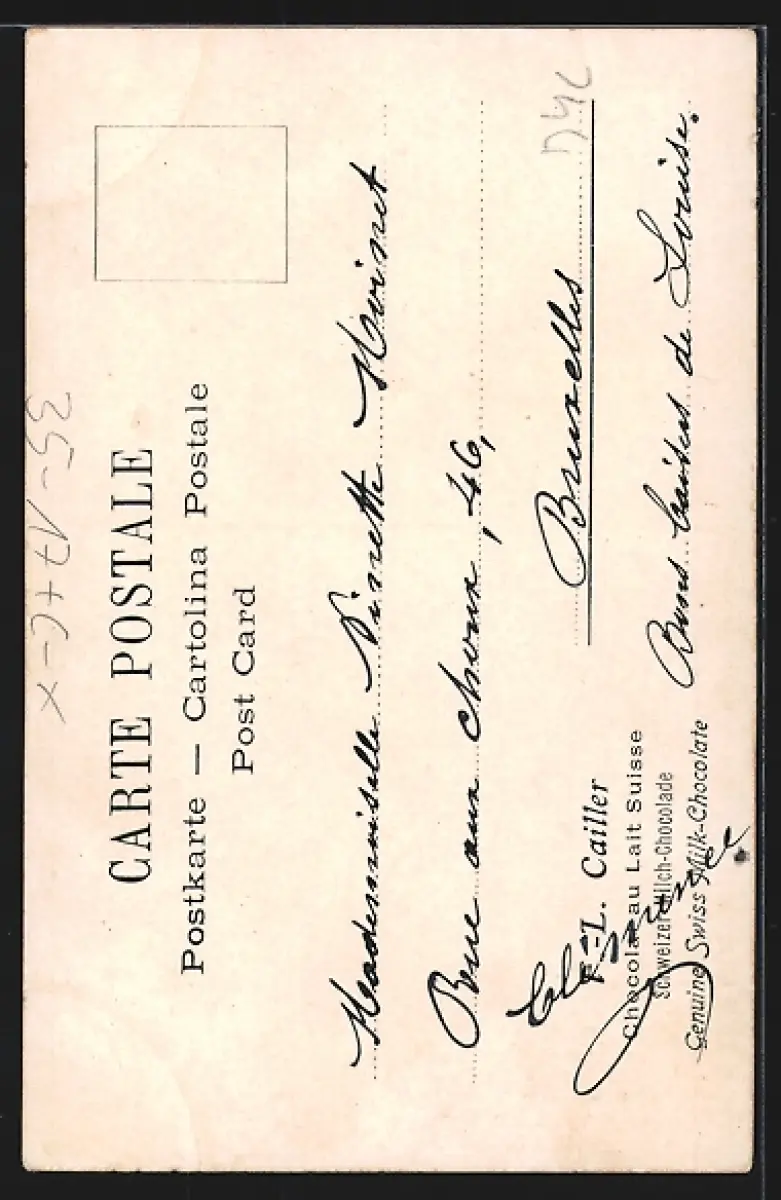 CARTE POSTALE
Postkarte — Cartolina Postale
Post Card
Mademoiselle Ninette Moinet
Rue aux choux, 46,
Bruxelles
Bons baisers de Louise.
F.-L. Cailler
Chocolat au Lait Suisse
Schweizer Milch-Chocolade
Genuine Swiss Milk-Chocolate
Clémence